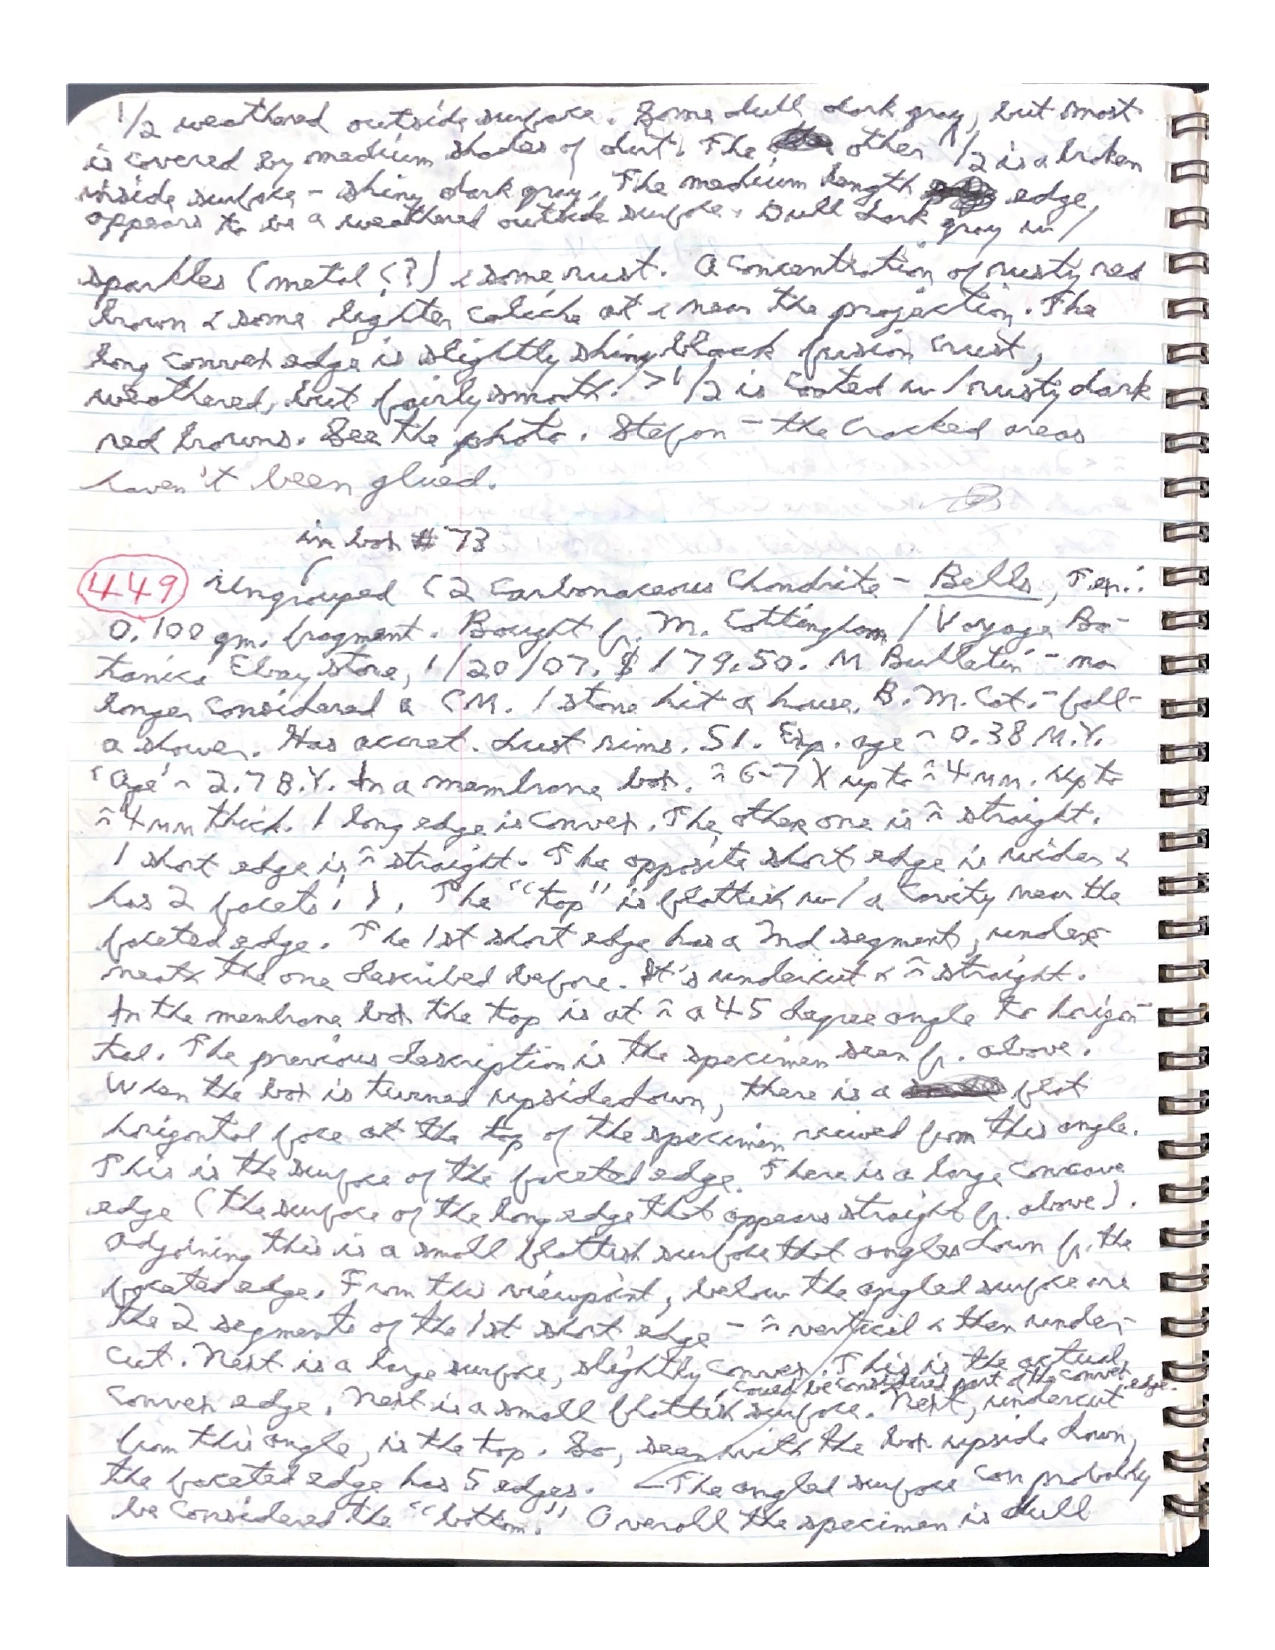 1/2 weathered outside surface. Some dull dark gray, but most
is covered by medium shades of dirt. The other 1/2 is a broken
inside surface - shiny dark gray. The medium length edge
appears to be a weathered outside surface. Dull dark gray w/
sparkles (metal (?) & some rust. A concentration of rusty red
brown & some lighter caliche at & near the projection. The
long convex edge is slightly shiny black fusion crust,
weathered, but fairly smooth. >1/2 is coated w/ rusty dark
red browns. See the photo. Stefan - the cracked areas
haven't been glued.
in box # 73
449 Ungrouped C2 Carbonaceous Chondrite - Bells, Tex.:
0.100 gm. fragment. Bought fr. M. Cottingham / Voyage Bo-
tanica Ebay store, 1/20/07. $179.50. M Bulletin - no
longer considered a CM. 1 stone hit a house. B.M. Cat. - fall-
a shower. Has accret. dust rims. S1. Exp. age ~ 0.38 M.Y.
'Age' ~ 2.7 B.Y. In a membrane box. ≈ 6-7 X up to ≈ 4 mm. Up to
≈ 4 mm thick. 1 long edge is convex. The other one is ≈ straight.
1 short edge is ≈ straight. The opposite short edge is wider &
has 2 facets: }. The "top" is flattish w/ a cavity near the
faceted edge. The 1st short edge has a 2nd segment, under-
neath the one described before. It's undercut & ≈ straight.
In the membrane box the top is at ≈ a 45 degree angle to horizon-
tal. The previous description is the specimen seen fr. above.
When the box is turned upsidedown, there is a flat
horizontal face at the top of the specimen viewed from this angle.
This is the surface of the faceted edge. There is a large concave
edge (the surface of the long edge that appears straight fr. above).
Adjoining this is a small flattish surface that angles down fr. the
faceted edge. From this viewpoint, below the angled surface are
the 2 segments of the 1st short edge - ≈ vertical & then under-
cut. Next is a large surface, slightly convex. This is the actual
, could be considered part of the convex edge.
convex edge. Next is a small flattish surface. Next, undercut
from this angle, is the top. So, seen with the box upside down,
the faceted edge has 5 edges. The angled surface can probably
be considered the "bottom." Overall the specimen is dull